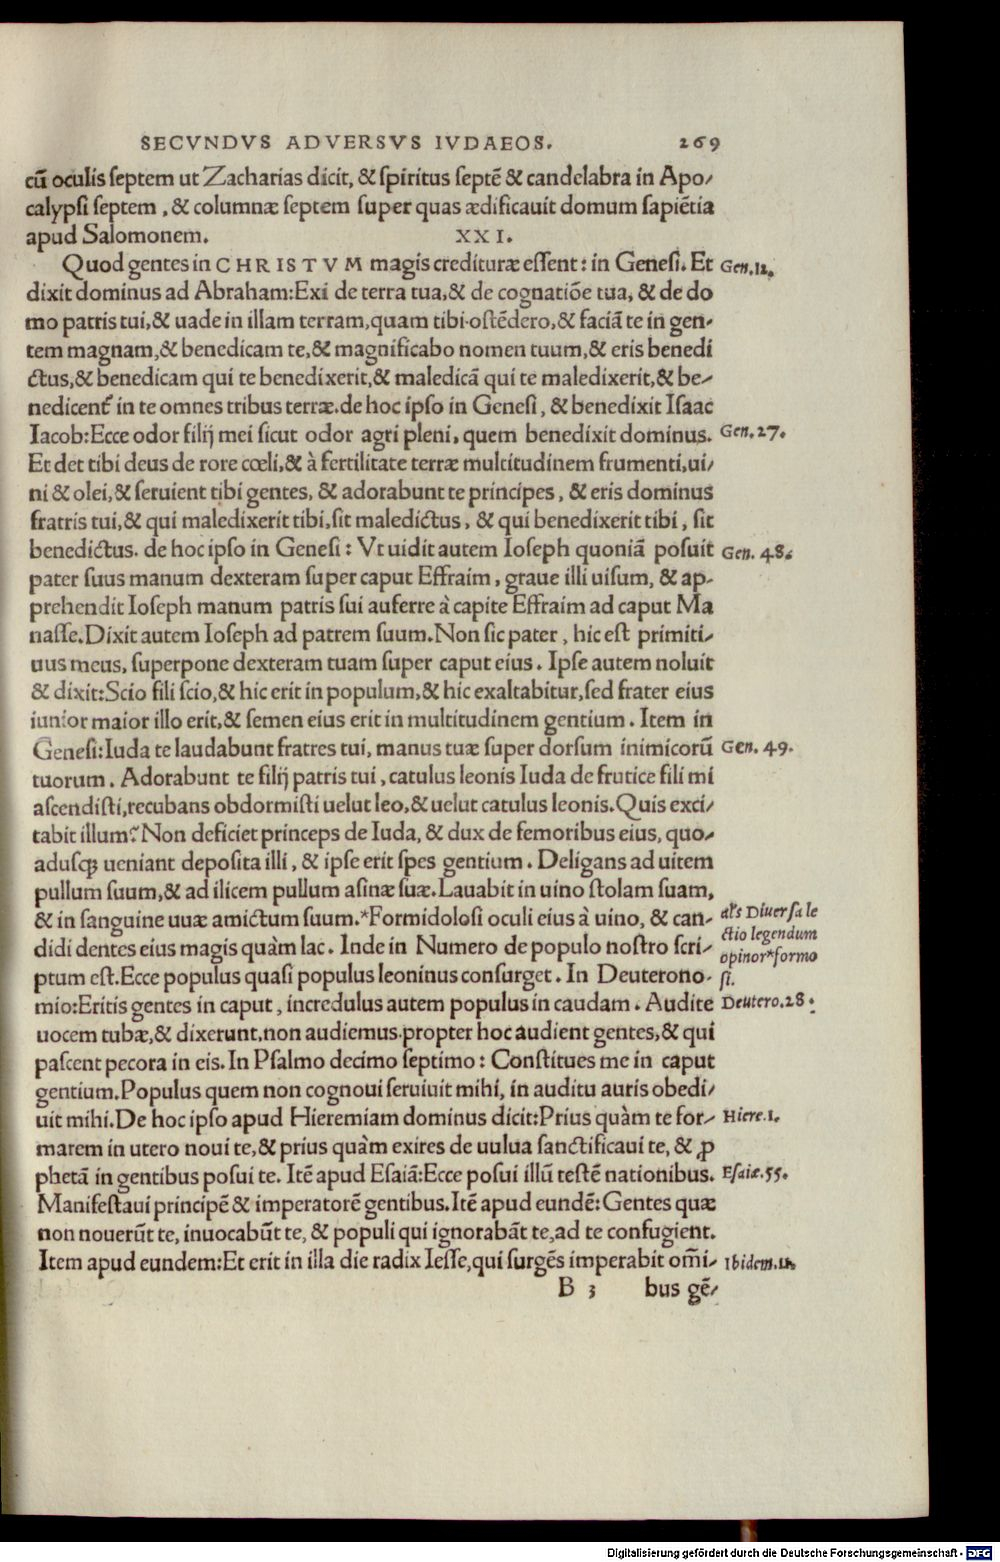 SECVNDVS ADVERSVS IVDAEOS. 269
cū oculis ſeptem ut Zacharias dicit, & ſpiritus ſeptē & candelabra in Apo/
calypſi ſeptem, & columnæ ſeptem ſuper quas ædificauit domum ſapiētia
apud Salomonem. XXI.
Quod gentes in CHRISTVM magis crediturę eſſent: in Geneſi. Et Gen.12.
dixit dominus ad Abraham:Exi de terra tua,& de cognatiōe tua, & de do
mo patris tui,& uade in illam terram,quam tibi oſtēdero,& faciā te in gen-
tem magnam,& benedicam te,& magnificabo nomen tuum,& eris benedi
ctus,& benedicam qui te benedixerit,& maledicā qui te maledixerit,& be/
nedicent᷑ in te omnes tribus terræ.de hoc ipſo in Geneſi, & benedixit Iſaac
Iacob:Ecce odor filij mei ſicut odor agri pleni, quem benedixit dominus. Gen.27.
Et det tibi deus de rore cœli,& à fertilitate terræ multitudinem frumenti,ui/
ni & olei,& ſeruient tibi gentes, & adorabunt te principes, & eris dominus
fratris tui,& qui maledixerit tibi,ſit maledictus, & qui benedixerit tibi, ſit
benedictus. de hoc ipſo in Geneſi: Vt uidit autem Ioſeph quoniā poſuit Gen. 48.
pater ſuus manum dexteram ſuper caput Effraim, graue illi uiſum, & ap-
prehendit Ioſeph manum patris ſui auferre à capite Effraim ad caput Ma
naſſe.Dixit autem Ioſeph ad patrem ſuum.Non ſic pater, hic eſt primiti/
uus meus, ſuperpone dexteram tuam ſuper caput eius. Ipſe autem noluit
& dixit:Scio fili ſcio,& hic erit in populum,& hic exaltabitur,ſed frater eius
iunior maior illo erit,& ſemen eius erit in multitudinem gentium. Item in
Geneſi:Iuda te laudabunt fratres tui, manus tuæ ſuper dorſum inimicorū Gen. 49.
tuorum. Adorabunt te filij patris tui, catulus leonis Iuda de frutice fili mi
aſcendiſti,recubans obdormiſti uelut leo,& uelut catulus leonis.Quis exci/
tabit illum? Non deficiet princeps de Iuda, & dux de femoribus eius, quo/
aduſqꝫ ueniant depoſita illi, & ipſe erit ſpes gentium. Deligans ad uitem
pullum ſuum,& ad ilicem pullum aſinæ ſuæ.Lauabit in uino ſtolam ſuam,
& in ſanguine uuæ amictum ſuum.*Formidoloſi oculi eius à uino, & can-
didi dentes eius magis quàm lac. Inde in Numero de populo noſtro ſcri/
ptum eſt.Ecce populus quaſi populus leoninus conſurget. In Deuterono-
als Diuerſa le
ctio legendum
opinor*formo
ſi.
mio:Eritis gentes in caput, incredulus autem populus in caudam. Audite Deutero.28.
uocem tubæ,& dixerunt,non audiemus.propter hoc audient gentes,& qui
paſcent pecora in eis.In Pſalmo decimo ſeptimo: Conſtitues me in caput
gentium.Populus quem non cognoui ſeruiuit mihi, in auditu auris obedi/
uit mihi.De hoc ipſo apud Hieremiam dominus dicit:Prius quàm te for/ Hiere.1.
marem in utero noui te,& prius quàm exires de uulua ſanctificaui te, & ꝓ
phetā in gentibus poſui te. Itē apud Eſaiā:Ecce poſui illū teſtē nationibus. Eſaiæ.55.
Manifeſtaui principē & imperatorē gentibus.Itē apud eundē:Gentes quæ
non nouerūt te, inuocabūt te, & populi qui ignorabāt te,ad te confugient.
Item apud eundem:Et erit in illa die radix Ieſſe,qui ſurgēs imperabit om̄i/ Ibidem.11.
B 3 bus gē/
Digitalisierung gefördert durch die Deutsche Forschungsgemeinschaft - DFG